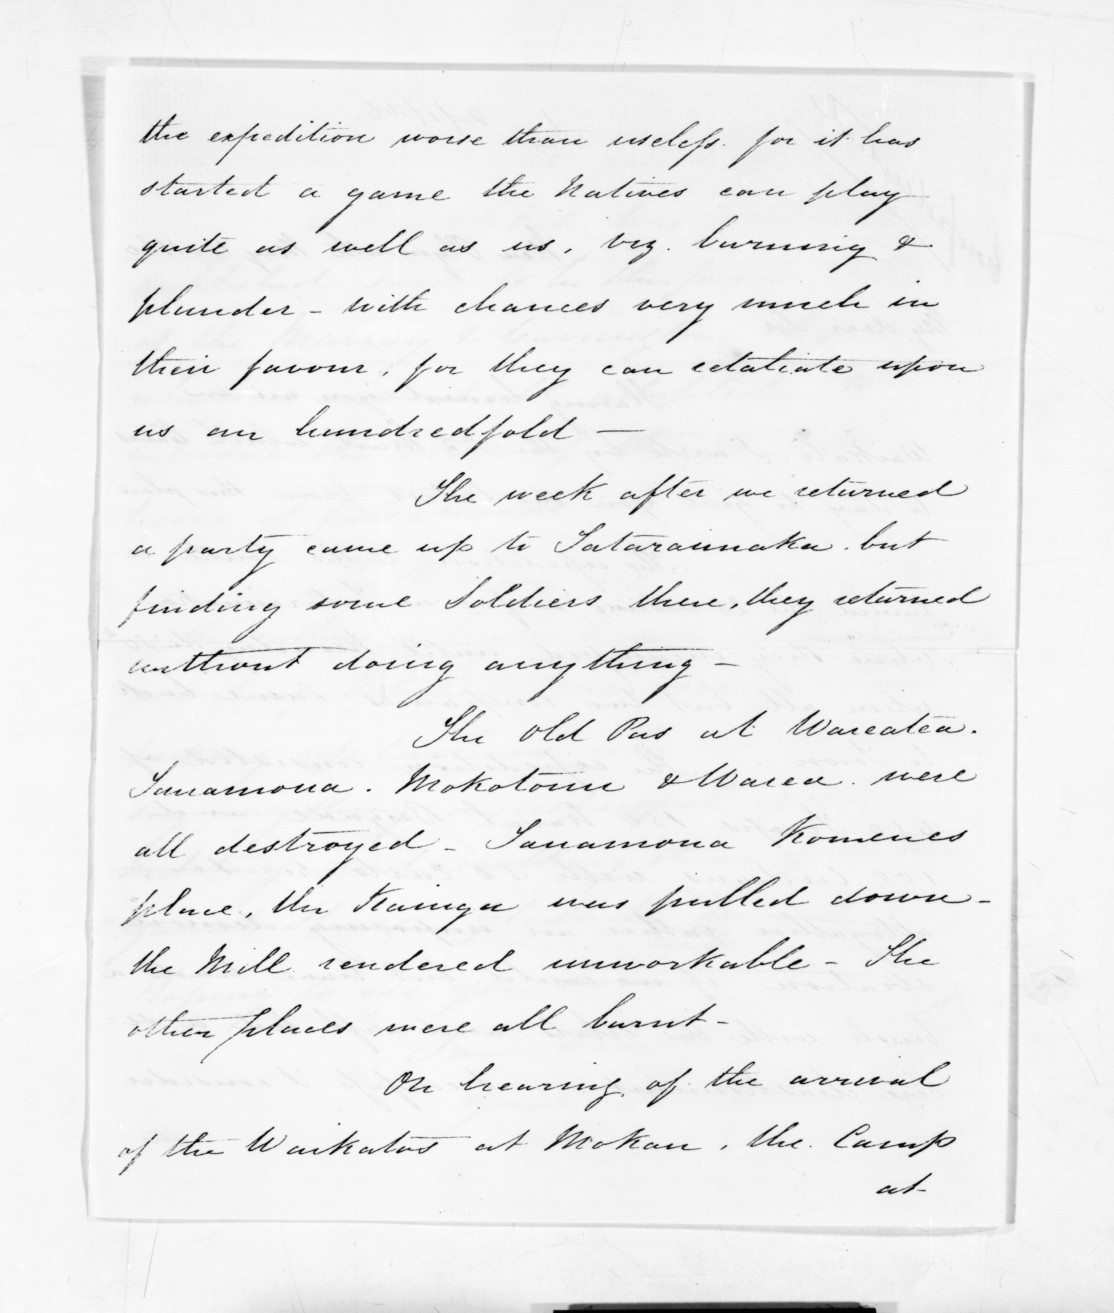 the expedition worse than useless. for it has
started a game the Natives can play
quite as well as us, viz. burning &
plunder - with chances very much in
their favour, for they can retaliate upon
us an hundredfold —
The week after we returned
a party came up to Tataraimaka. but
finding some Soldiers there, they returned
without doing anything -
The old Pas at Wareatea.
Tanamona. Mokotonu & Warea. were
all destroyed - Tanamona Komenes
place, the Kainga was pulled down -
the Mill rendered unworkable - The
other places were all burnt -
On hearing of the arrival
of the Waikatos at Mokau, the Camp
at